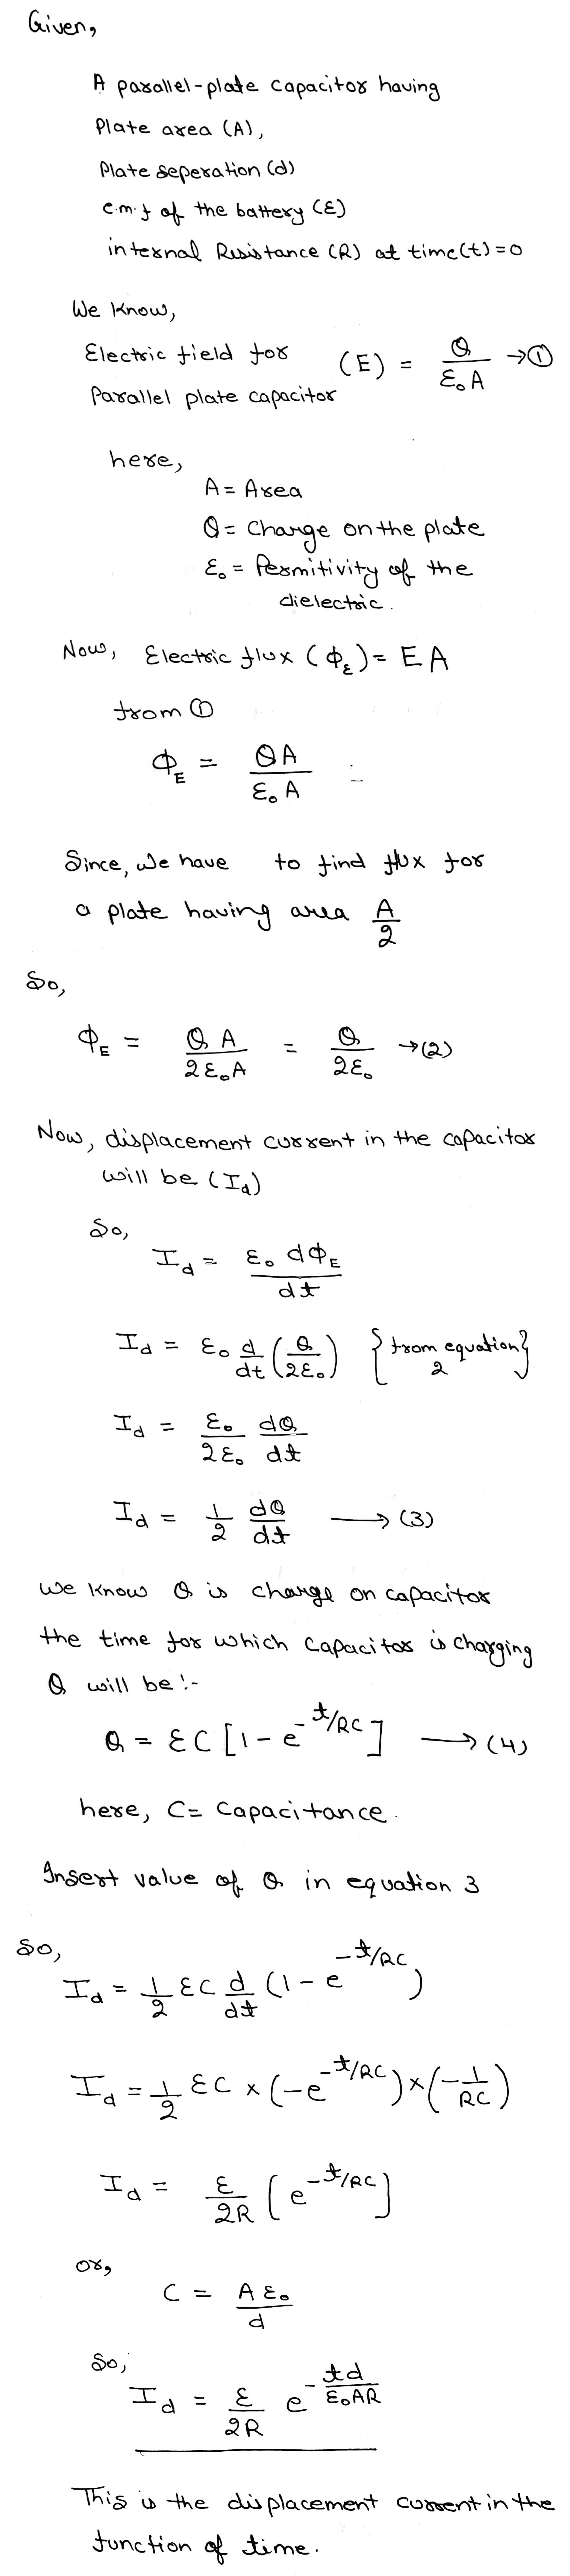 Given,
A parallel-plate capacitor having
Plate area (A),
Plate seperation (d)
e.m.f of the battery (ε)
internal Resistance (R) at time(t)=0
We know,
Electric field for (E) = Q/ε₀A →①
Parallel plate capacitor
here,
A = Area
Q = Charge on the plate
ε₀ = Permitivity of the
dielectric.
Now, Electric flux (ϕ_E) = EA
from ①
ϕ_E = QA/ε₀A
Since, We have to find flux for
a plate having area A/2
So,
ϕ_E = QA/2ε₀A = Q/2ε₀ →(2)
Now, displacement current in the capacitor
will be (I_d)
So,
I_d = ε₀ dϕ_E/dt
I_d = ε₀ d/dt (Q/2ε₀) {from equation 2}
I_d = ε₀/2ε₀ dQ/dt
I_d = 1/2 dQ/dt ⟶ (3)
We know Q is charge on capacitor
the time for which capacitor is charging
Q will be :-
Q = εC[1-e^(-t/RC)] ⟶ (4)
here, C = Capacitance.
Insert value of Q in equation 3
So,
I_d = 1/2 εC d/dt (1-e^(-t/RC))
I_d = 1/2 εC × (-e^(-t/RC)) × (-1/RC)
I_d = ε/2R (e^(-t/RC)]
or,
C = Aε₀/d
So,
I_d = ε/2R e^(-td/ε₀AR)
This is the displacement current in the
function of time.